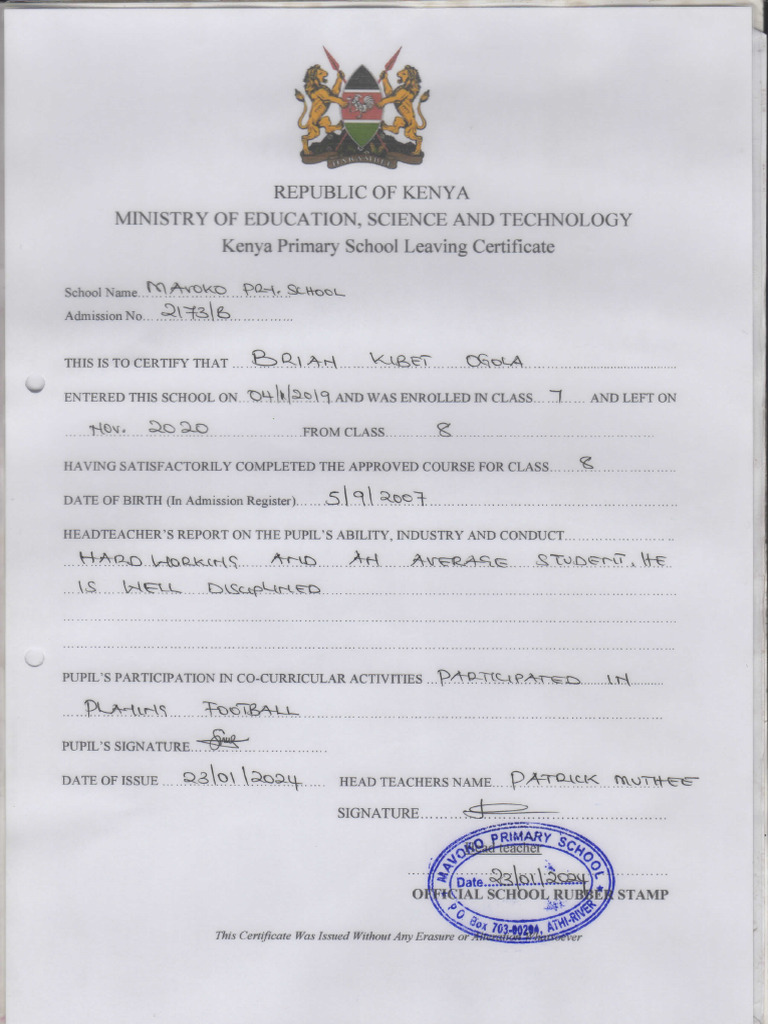 HARAMBEE
REPUBLIC OF KENYA
MINISTRY OF EDUCATION, SCIENCE AND TECHNOLOGY
Kenya Primary School Leaving Certificate
School Name MAVOKO PRY. SCHOOL
Admission No. 2173/B
THIS IS TO CERTIFY THAT BRIAN KIBET OGOLA
ENTERED THIS SCHOOL ON 04/1/2019 AND WAS ENROLLED IN CLASS 7 AND LEFT ON
Nov. 2020 FROM CLASS 8
HAVING SATISFACTORILY COMPLETED THE APPROVED COURSE FOR CLASS 8
DATE OF BIRTH (In Admission Register) 5/9/2007
HEADTEACHER'S REPORT ON THE PUPIL'S ABILITY, INDUSTRY AND CONDUCT
HARD WORKING AND AN AVERAGE STUDENT. HE
IS WELL DISCIPLINED
PUPIL'S PARTICIPATION IN CO-CURRICULAR ACTIVITIES PARTICIPATED IN
PLAYING FOOTBALL
PUPIL'S SIGNATURE
DATE OF ISSUE 23/01/2024 HEAD TEACHERS NAME PATRICK MUTHEE
SIGNATURE
MAVOKO PRIMARY SCHOOL
Head teacher
Date 23/01/2024
OFFICIAL SCHOOL RUBBER STAMP
P O Box 703-00204, ATHI-RIVER
This Certificate Was Issued Without Any Erasure or Alteration Whatsoever